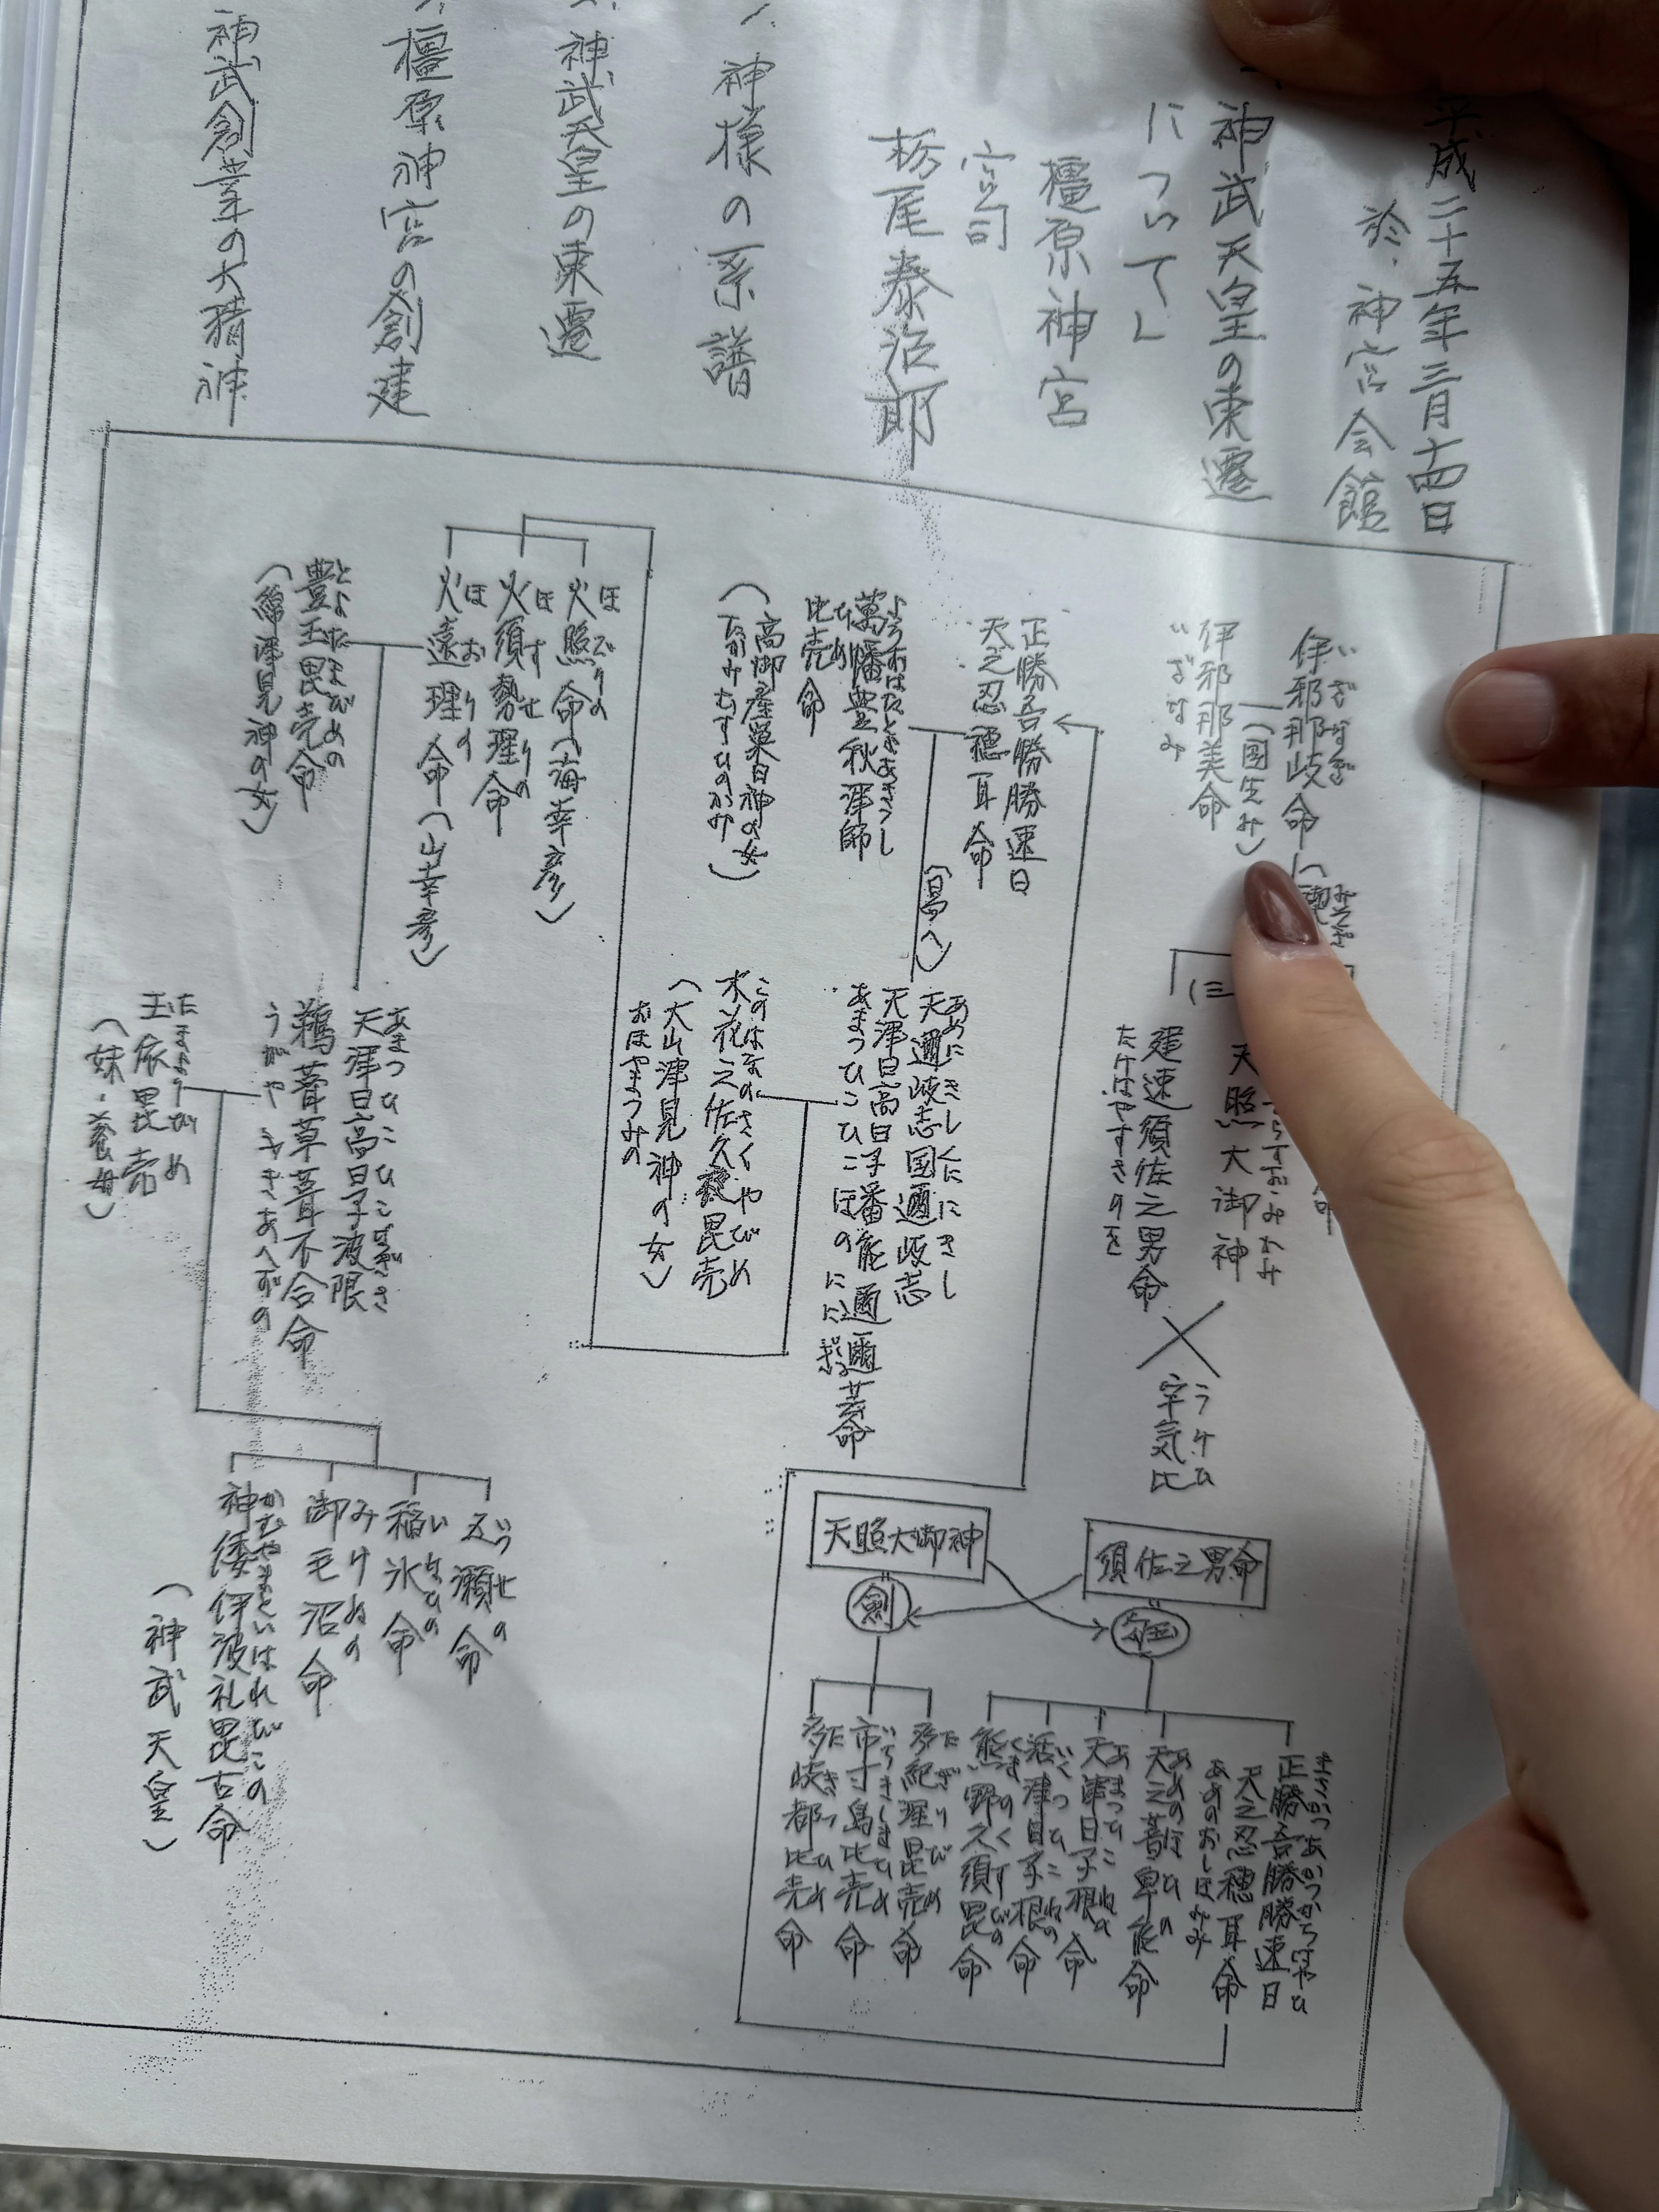 平成二十五年三月十四日
於、神宮会館
一、神武天皇の東遷
について
橿原神宮
宮司
栃尾泰治郎
神様の系譜
神武天皇の東遷
橿原神宮の創建
神武創業の大精神
いざなぎ
伊邪那岐命
(国生み)
伊邪那美命
いざなみ
みそぎ
禊
(三
天照大御神
建速須佐之男命
たけはやすさのを
うけひ
宇気比
須佐之男命
天照大御神
剣
まさかつあかつかちはやひ
正勝吾勝勝速日
天之忍穂耳命
あめのおしほみみ
あめのほひの
天之菩卑能命
あまつひこねの
天津日子根命
いくつひこねの
活津日子根命
くまのくすびの
熊野久須毘命
たぎりびめ
多紀理毘売命
いちきしまひめ
市寸島比売命
たきつひめ
多岐都比売命
正勝吾勝勝速日
天之忍穂耳命
よろずはたとよあきつし
萬幡豊秋津師
ひめ
比売命
(高御産巣日神の女
たかみむすひのかみ)
(日高へ)
あめにきしくににきし
天邇岐志国邇岐志
天津日高日子番能邇邇芸命
あまつひこひこほのににぎ
このはなのさくやびめ
木花之佐久夜毘売
(大山津見神の女)
おほやまつみの
ほでりの
火照命(海幸彦)
ほすせりの
火須勢理命
ほおりの
火遠理命(山幸彦)
とよたまびめの
豊玉毘売命
(綿津見神の女)
あまつひこひこなぎさ
天津日高日子波限
鵜葺草葺不合命
うがやふきあへずの
たまよりびめ
玉依毘売
(妹・養母)
いつせの
五瀬命
いなひの
稲氷命
みけぬの
御毛沼命
かむやまといはれびこの
神倭伊波礼毘古命
(神武天皇)